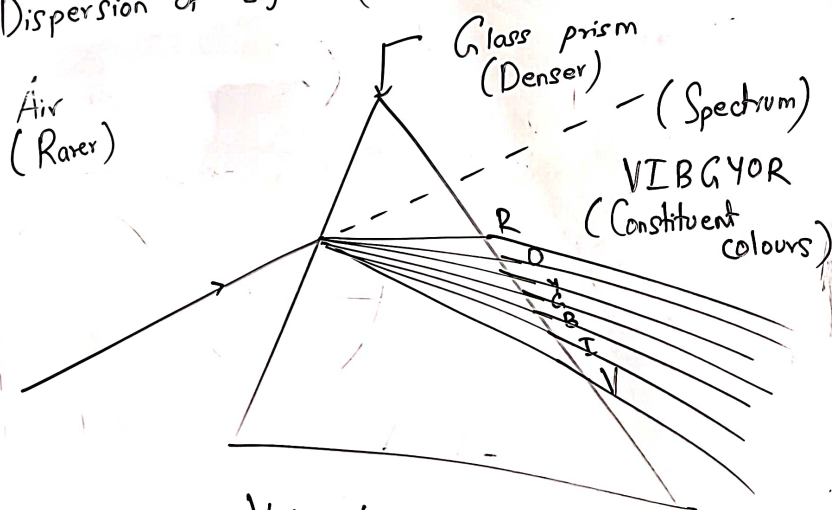 Dispersion of
Glass prism
(Denser)
Air
(Rarer)
(Spectrum)
VIBGYOR
(Constituent
colours)
R
O
Y
G
B
I
V